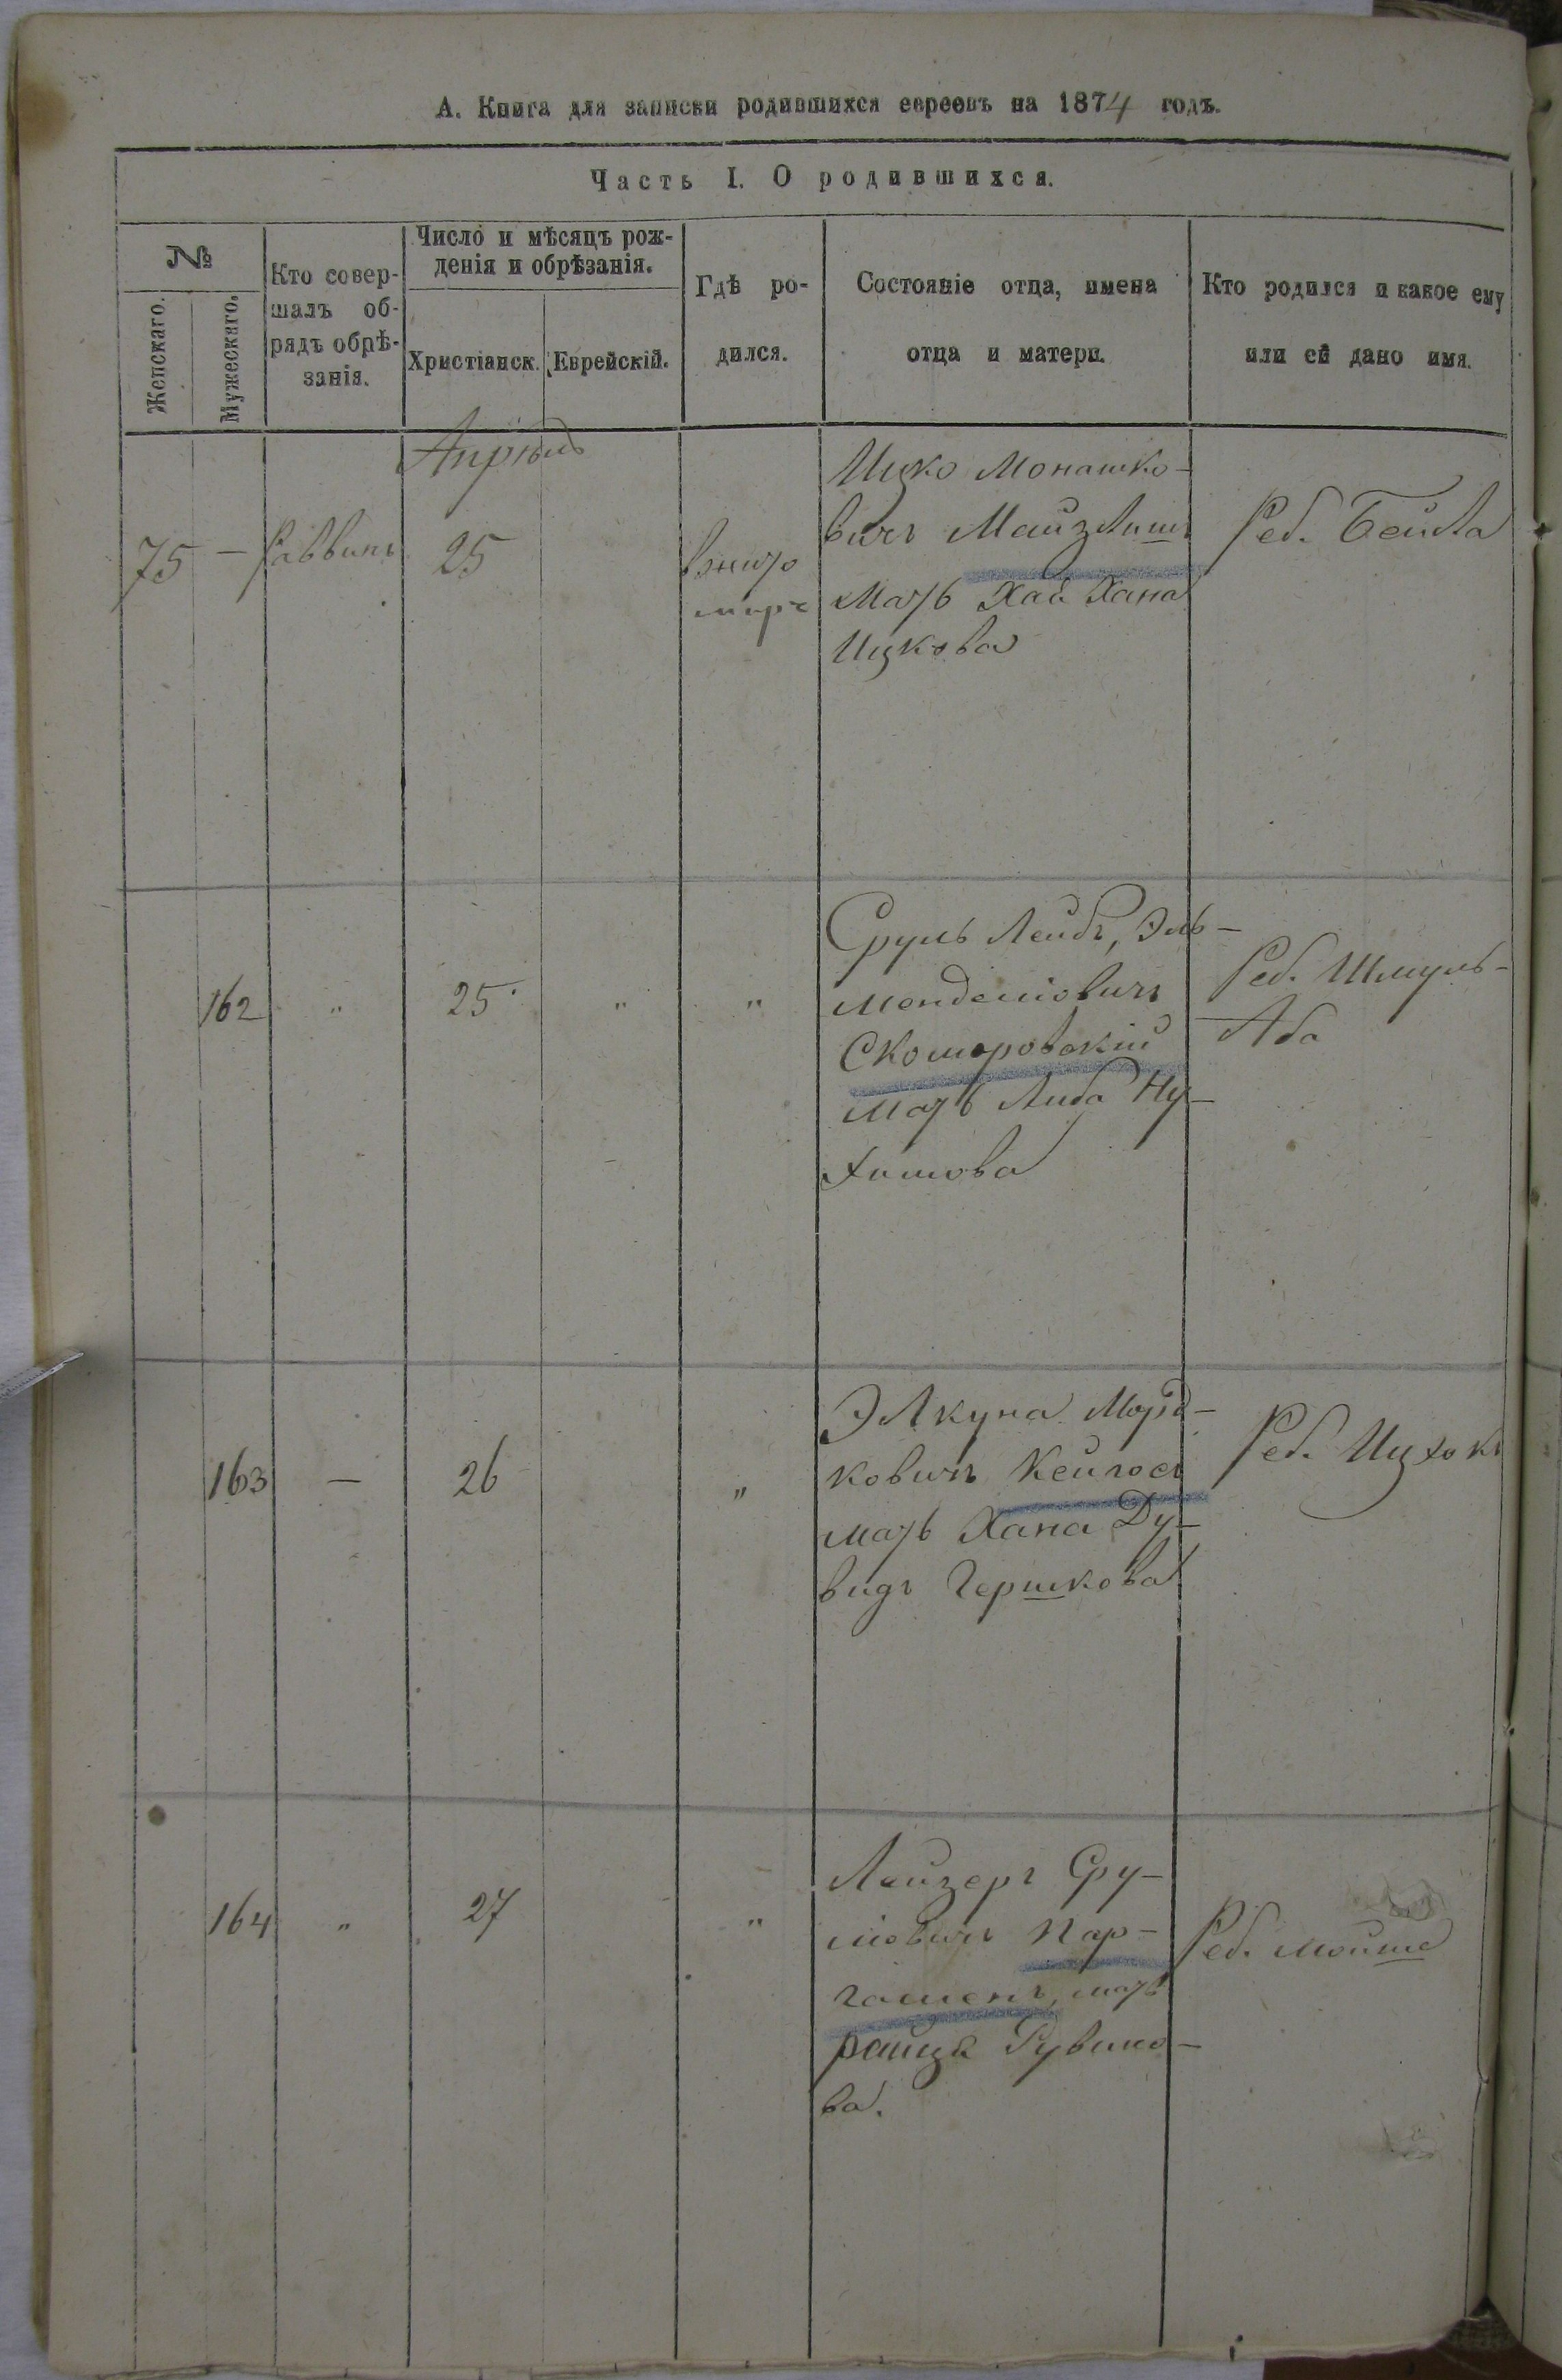 А. Книга для записки родившихся евреевъ на 1874 годъ.
Часть I. О родившихся.
№
Женскаго.
Мужескаго.
Кто совер-
шалъ об-
рядъ обрѣ-
занія.
Число и мѣсяцъ рож-
денія и обрѣзанія.
Христіанск.
Еврейскій.
Гдѣ ро-
дился.
Состояніе отца, имена
отца и матери.
Кто родился и какое ему
или ей дано имя.
Апрѣль
75 — Раввинъ 25
Ицко Монашко-
вичъ Майзлишъ
Мать Хая Хана
Ицкова
Реб. Бейла
162 " 25 " "
Сруль Лейбъ, Эль-
Менделіовичъ
Скоморовскій
Мать Либа Ну-
химова
Реб. Шмуль-
Аба
163 — 26 "
Элкуна Морд-
ковичъ Кейгосъ
мать Хана Ду-
видъ Гершкова
Реб. Ицхокъ
164 " 27 "
Лейзеръ Сру-
ліовичъ Пар-
гаменъ, мать
Раица Рувино-
ва.
Реб. Мойше